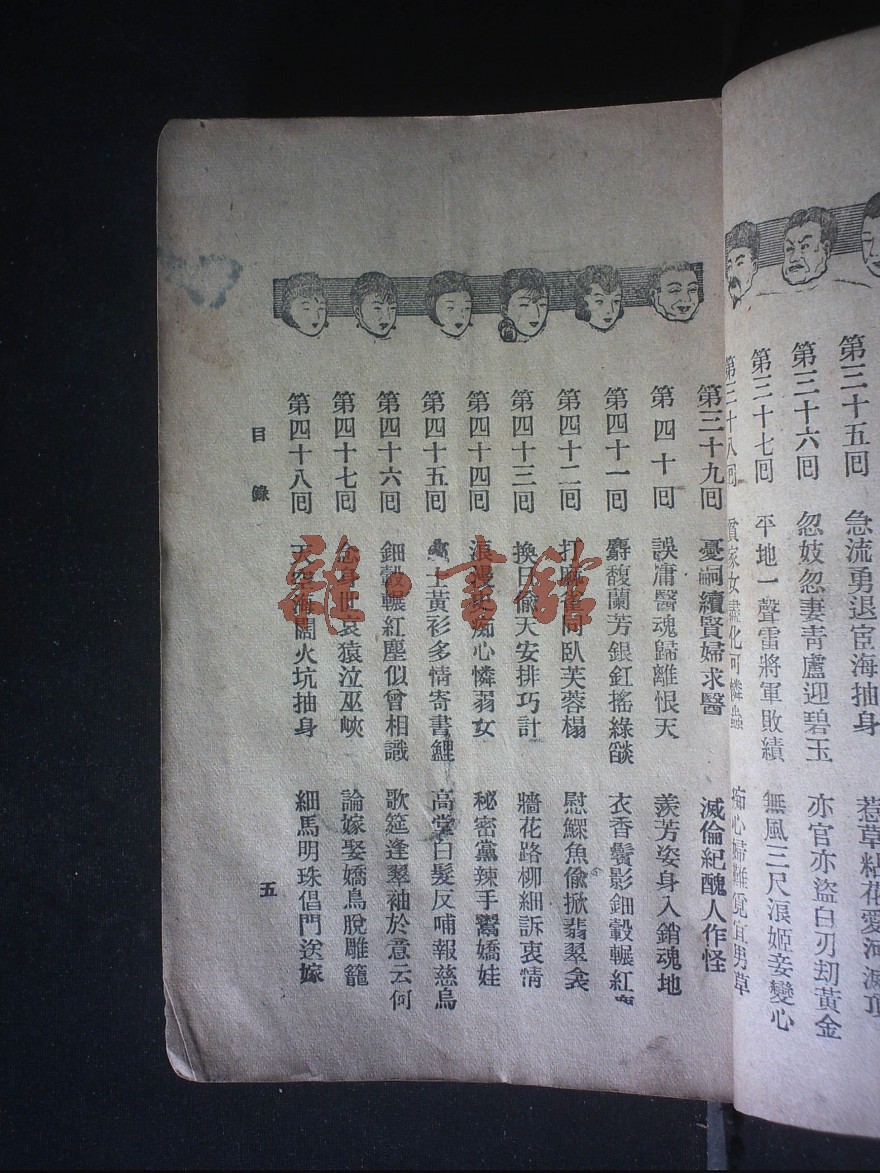 第三十五回 急流勇退宦海抽身 惹草粘花愛河滅頂
第三十六回 忽妓忽妻青廬迎碧玉 亦官亦盜白刃刼黃金
第三十七回 平地一聲雷將軍敗績 無風三尺浪姬妾變心
第三十八回 貧家女盡化可憐蟲 痴心婦難覓宜男草
第三十九回 憂嗣續賢婦求醫 滅倫紀醜人作怪
第四十回 誤庸醫魂歸離恨天 羨芳姿身入銷魂地
第四十一回 麝馥蘭芳銀釭搖綠燄 衣香鬢影鈿轂輾紅
第四十二回 打麻雀同臥芙蓉榻 慰鰥魚偷掀翡翠衾
第四十三回 換日偷天安排巧計 牆花路柳細訴衷情
第四十四回 浪漫史痴心憐弱女 秘密黨辣手鬻嬌娃
第四十五回 士黃衫多情寄書鯉 高堂白髮反哺報慈烏
第四十六回 鈿轂輾紅塵似曾相識 歌筵逢翠袖於意云何
第四十七回 念身世哀猿泣巫峽 論嫁娶嬌鳥脫雕籠
第四十八回 天空海闊火坑抽身 細馬明珠倡門送嫁
目錄
五
雜·書館